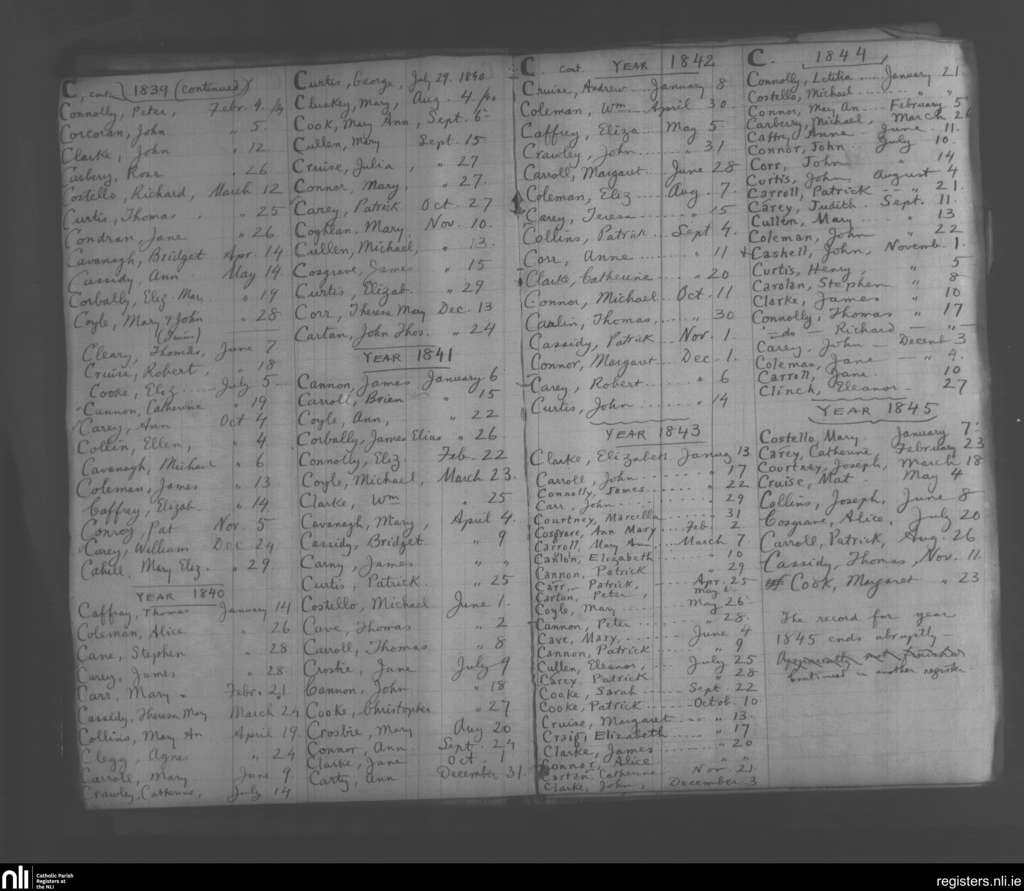 C, cont. 1839 (continued)
Connolly, Peter, Febr. 4.
Corcoran, John " 5.
Clarke, John " 12
Casbery, Rose " 26
Costello, Richard, March 12
Curtis, Thomas, " 25
Condran, Jane " 26
Cavanagh, Bridget Apr 14
Cassidy, Ann May 14
Corbally, Eliz. Mary " 19
Coyle, Mary & John " 28
(Twins)
Cleary, Thomas, June 7.
Cruise, Robert, " 18
Cooke, Eliz. July 5
Cannon, Catherine " 19
Carey, Ann Oct 4
Collin, Ellen, " 4
Cavanagh, Michael " 6
Coleman, James " 13
Caffrey, Elizab. " 14
Conroy, Pat Nov. 5
Carey, William Dec 24
Cahill, Mary Eliz. " 29
YEAR 1840
Caffray, Thomas January 14
Coleman, Alice " 26
Cane, Stephen " 28
Carey, James " 28
Carr, Mary " Febr. 21
Cassidy, Theresa May March 24
Collins, May An April 19
Clegg, Agnes " 24
Carroll, Mary June 9
Crawley, Catherine, July 14
Curtis, George, July 29. 1840
Cluskey, Mary, Aug. 4
Cook, Mary Ann, Sept. 6
Cullen, Mary Sept. 15
Cruise, Julia, " 27
Connor, Mary, " 27.
Carey, Patrick Oct. 27
Coghlan, Mary, Nov. 10.
Cullen, Michael, " 13.
Cosgrave, James " 15
Curtis, Elizab. " 29
Corr, Theresa May Dec. 13
Cartan, John Thos. " 24
YEAR 1841
Cannon, James January 6
Carroll, Brien " 15
Coyle, Ann, " 22
Corbally, James Elias " 26.
Connolly, Eliz. Feb. 22
Coyle, Michael, March 23.
Clarke, Wm " 25
Cavanagh, Mary, April 4.
Cassidy, Bridget " 9
Carny, James " "
Curtis, Patrick " 25
Costello, Michael June 1.
Cave, Thomas " 2
Carroll, Thomas " 8
Crosbie, Jane July 9
Cannon, John " 18
Cooke, Christopher " 27
Crosbie, Mary Aug 20
Connor, Ann Sept. 24
Clarke, Jane Oct. 1
Carty, Ann December 31
C. cont YEAR 1842
Cruise, Andrew January 8
Coleman, Wm April 30.
Caffrey, Eliza May 5
Crawley, John " 31
Carroll, Margaret June 28
Coleman, Eliz Aug. 7.
Carey, Teresa " 15
Collins, Patrick Sept 4.
Corr, Anne " 11
Clarke, Catherine " 20
Connor, Michael Oct. 11
Thomas, " 30
Cassidy, Patrick Nov. 1.
Connor, Margaret Dec. 1.
Carey, Robert " 6
Curtis, John " 14
YEAR 1843
Clarke, Elizabeth January 13
Carroll, John " 17
Connolly, James " 22
Carr, John " 29
Courtney, Marcella " 31
Cosgrave, Ann Mary Feb. 2
Carroll, Mary Ann March 7
Canlon, Elizabeth " 10
Cannon, Patrick " 29
Carr, Patrick, Apr. 25
Cartan, Peter, May
Coyle, Mary May 26
Cannon, Peter " 28.
Cave, Mary June 4
Cannon, Patrick " 9
Cullen, Eleanor, July 25
Carey, Patrick " 28
Cooke, Sarah Sept. 22
Cooke, Patrick Octob. 10
Cruise, Margaret " 13.
Craig, Elizabeth " 17
Clarke, James " 20
Connor, Alice " "
Cartan, Catherine Nov. 21
Clarke, John, December 3
C. 1844
Connolly, Letitia January 21.
Costello, Michael " "
Connor, May An February 5
Carberry, Michael, March 26
Caffry, Anne June 11.
Connor, John July 10.
Corr, John " 14
Curtis, John August 4
Carroll, Patrick " 21.
Carey, Judith Sept. 11.
Cullen, Mary " 13
Coleman, John " 22
Cashell, John, Novemb. 1.
Curtis, Henry, " 5
Carolan, Stephen " 8
Clarke, James " 10
Connolly, Thomas " 17
- do - Richard - " -
Carey, John - Decemb 3
Coleman, Jane - " 4.
Carroll, Jane 10
Clinch, Eleanor 27
YEAR 1845
Costello, Mary January 7.
Carey, Catherine February 23
Courtney, Joseph, March 18
Cruise, Mat May 4
Collins, Joseph, June 8
Cosgrave, Alice, July 20
Carroll, Patrick, Aug. 26
Cassidy, Thomas, Nov. 11
Cook, Margaret " 23
The record for year
1845 ends abruptly -
Apparently not finished
Continued in another register
nli Catholic Parish
Registers at
the NLI
registers.nli.ie